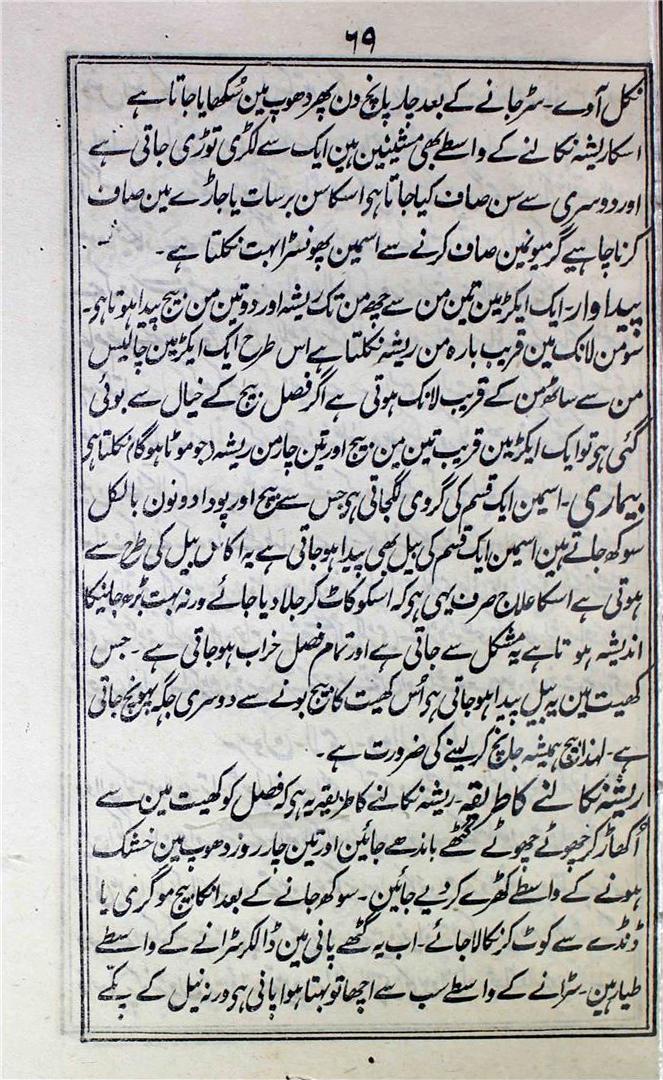 ۶۹
نکل آوے۔ سڑجانے کے بعد چار پانچ دن پھر دھوپ مین سُکھایا جاتا ہے
اسکا ریشہ نکالنے کے واسطے بھی مشینین ہین ایک سے لکڑی توڑی جاتی ہے
اور دوسری سے سن صاف کیا جاتا ہی اسکا سن برسات یا جاڑے مین صاف
کرنا چاہیے گرمیونمین صاف کرنے سے اسمین پھونسڑا بہت نکلتا ہے۔
پیداوار۔ ایک ایکڑ مین تین من سے چھ من تک ریشہ اور دو تین من بیج پیدا ہوتا ہی۔
سومن لانک مین قریب بارہ من ریشہ نکلتا ہے اس طرح ایک ایکڑ مین چالیس
من سے ساٹھ من کے قریب لانک ہوتی ہے اگر فصل بیج کے خیال سے بوئی
گئی ہی تو ایک ایکڑ مین قریب تین من بیج اور تین چار من ریشہ (جو موٹا ہوگا) نکلتا ہی
بیماری۔ اسمین ایک قسم کی گروی لگجاتی ہی جس سے بیج اور پودا دونون بالکل
سوکھ جاتے ہین اسمین ایک قسم کی بیل بھی پیدا ہو جاتی ہے یہ اکاس بیل کی طرح سے
ہوتی ہے اسکا علاج صرف یہی ہی کہ اسکو کاٹ کر جلا دیا جائے ورنہ بہت بڑھ جانیکا
اندیشہ ہوتا ہے یہ مشکل سے جاتی ہے اور تمام فصل خراب ہو جاتی ہے۔ جس
کھیت مین یہ بیل پیدا ہو جاتی ہی اُس کھیت کا بیج بونے سے دوسری جگہ پہونچ جاتی
ہے۔ لہذا بیج ہمیشہ جانچ کر لینے کی ضرورت ہے۔
ریشہ نکالنے کا طریقہ۔ ریشہ نکالنے کا طریقہ یہ ہی کہ فصل کو کھیت مین سے
اُکھاڑ کر چھوٹے چھوٹے گٹھے باندھے جائین اور تین چار روز دھوپ مین خشک
ہونے کے واسطے کھڑے کر دیے جائین۔ سوکھ جانے کے بعد انکا بیج موگری یا
ڈنڈے سے کوٹ کر نکالا جائے۔ اب یہ گٹھے پانی مین ڈالکر سڑانے کے واسطے
طیار ہین۔ سڑانے کے واسطے سب سے اچھا تو بہتا ہوا پانی ہی ورنہ نیل کے پکے